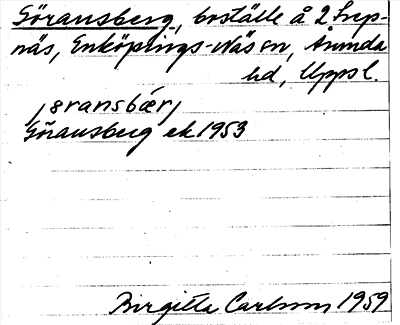 Göransberg, boställe å 2 Srep-
näs, Enköpings-Näs sn, Åsunda
hd, Uppsl.
Göransberg ek 1953
Birgitta Carlsson 1959